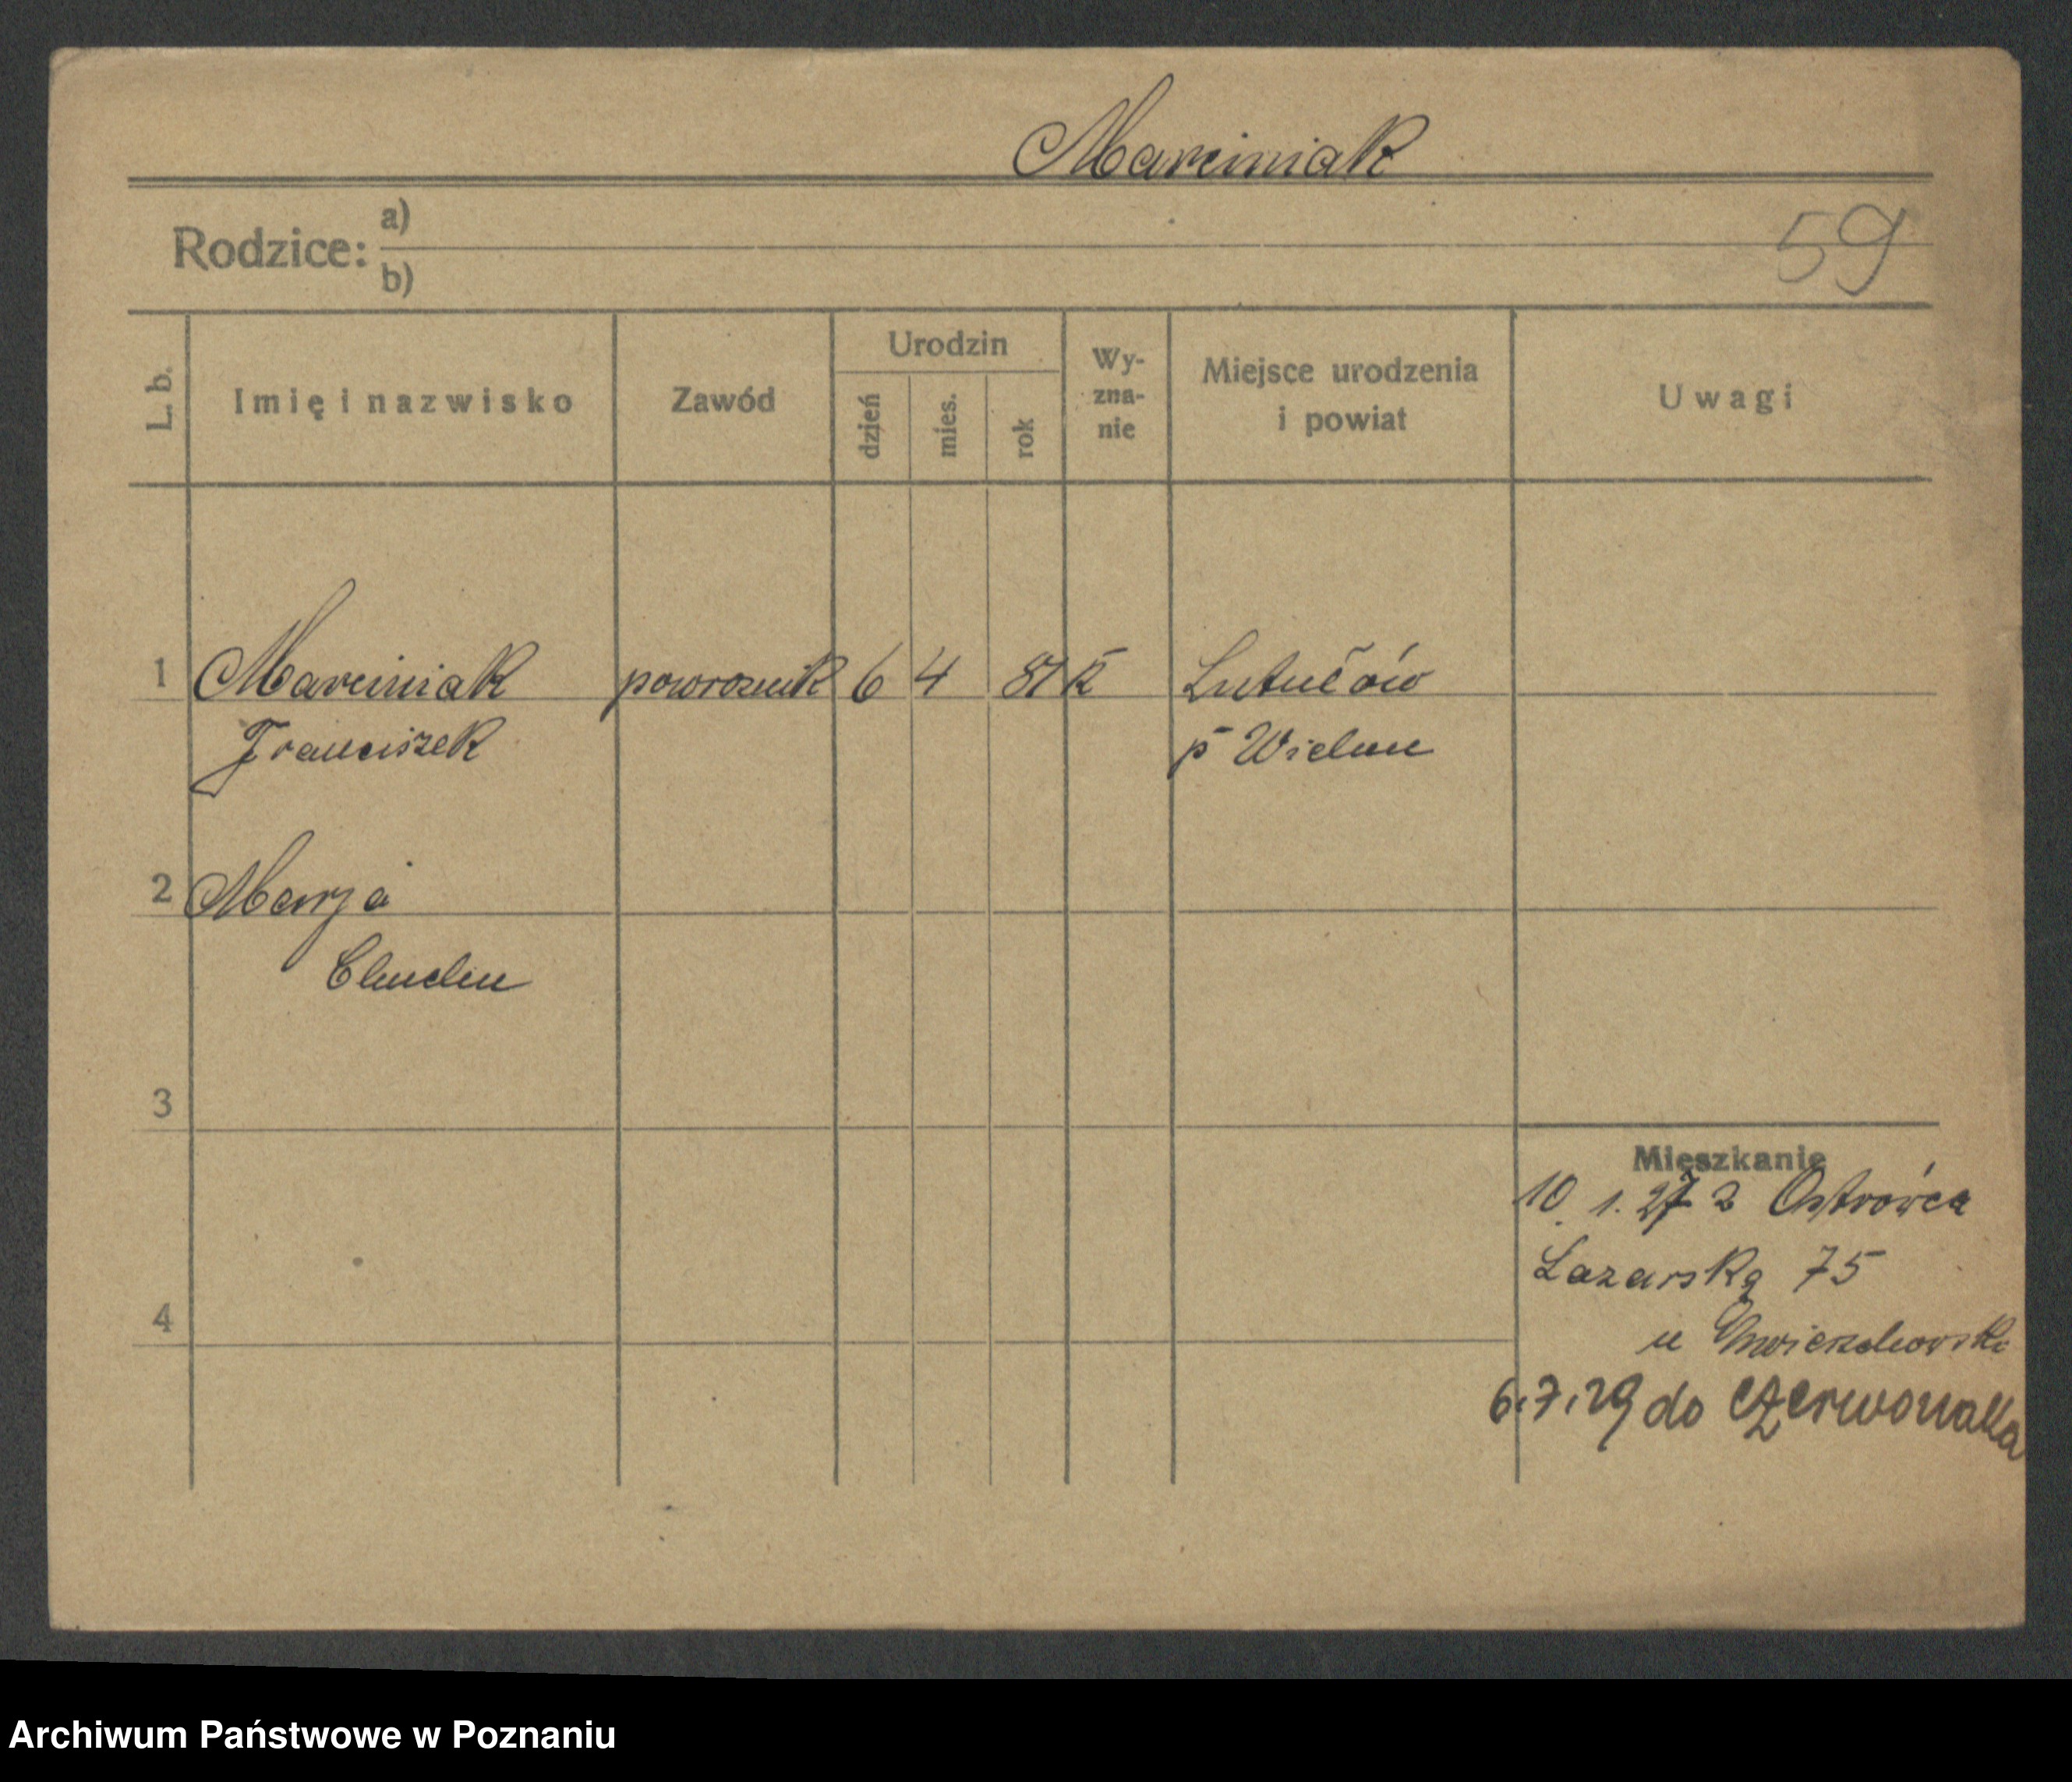 Marciniak
Rodzice: a)
b)
59
L. b.
Imię i nazwisko
Zawód
Urodzin
dzień
mies.
rok
Wy-
zna-
nie
Miejsce urodzenia
i powiat
Uwagi
1 Marciniak powroznik 6 4 81 k Lutułów
Franciszek p Wielun
2 Marja
3
Mieszkanie
10. 1. 27 z Ostrówca
Lazarska 75
4
u
6.7.29 do Czerwonaka
Archiwum Państwowe w Poznaniu